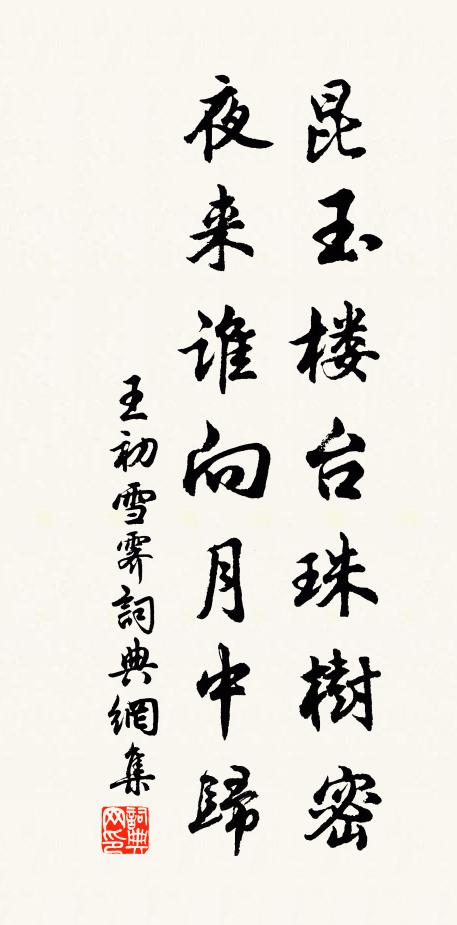 昆玉楼台珠樹密
夜来谁向月中歸
王初雪霽詞典網集
詞典网印